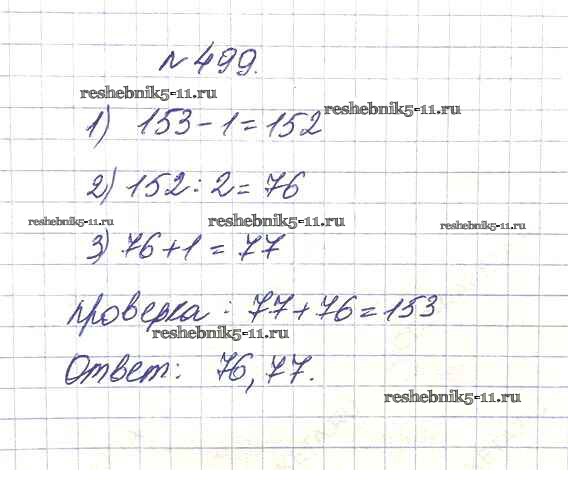 № 499.
reshebnik5-11.ru
reshebnik5-11.ru
1) 153 - 1 = 152
2) 152 : 2 = 76
reshebnik5-11.ru
reshebnik5-11.ru
reshebnik5-11.ru
3) 76 + 1 = 77
проверка : 77 + 76 = 153
reshebnik5-11.ru
Ответ: 76, 77.
reshebnik5-11.ru